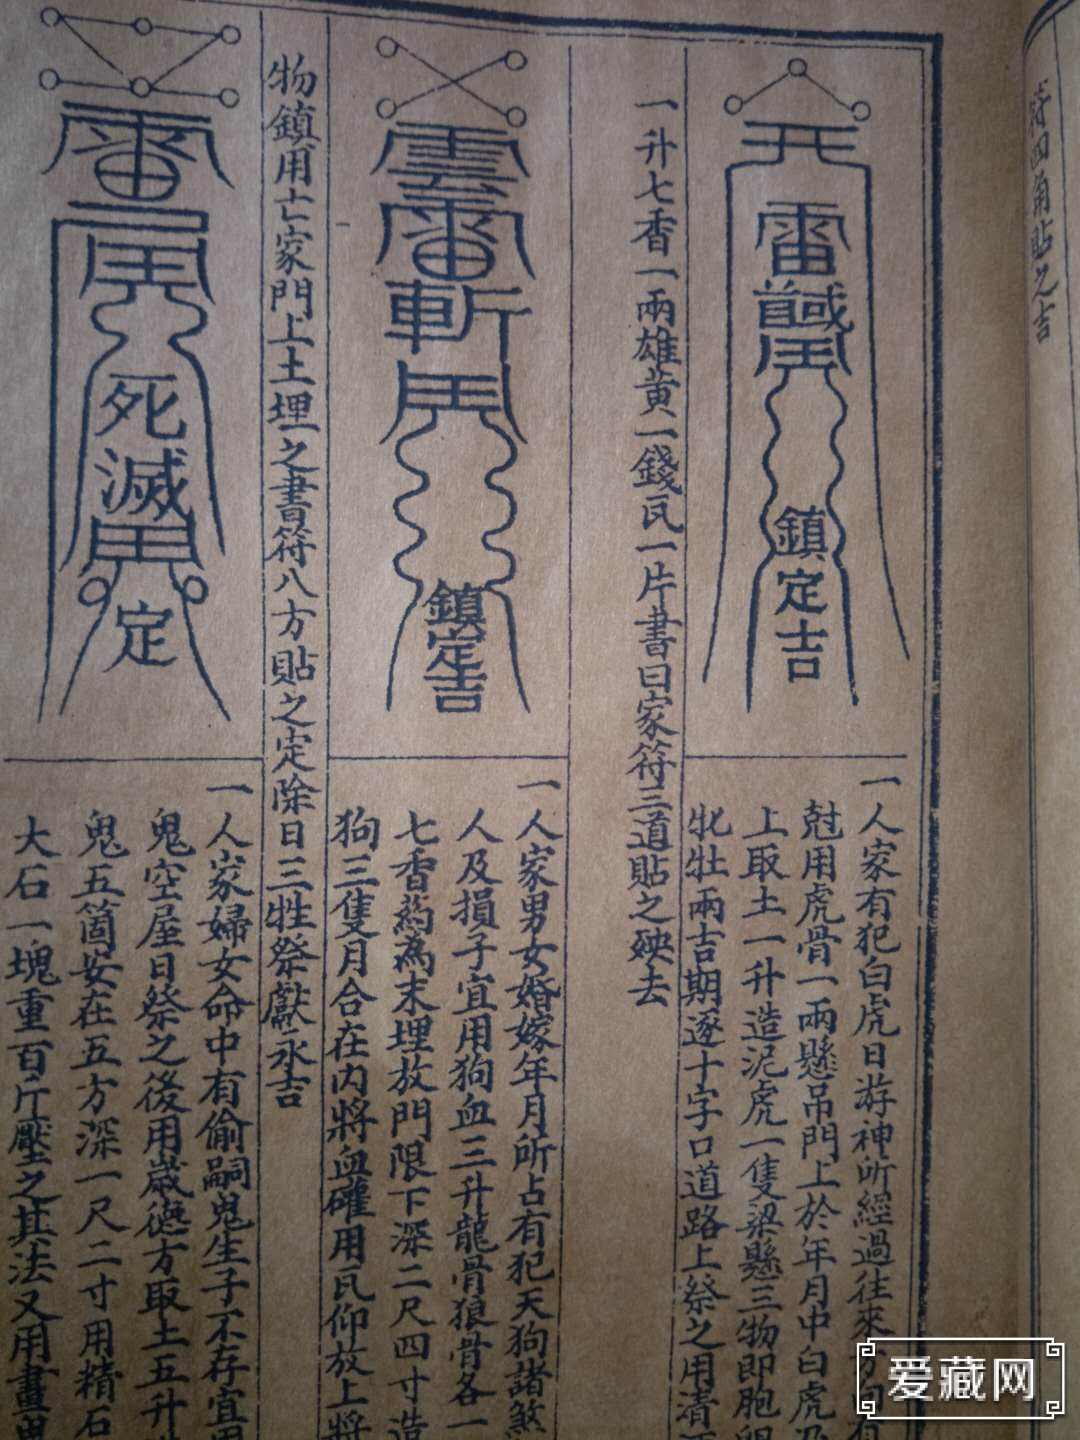 符四角貼之吉
一人家有犯白虎日游神所經過往來方向有
尅用虎骨一兩懸吊門上於年月中白虎
上取土一升造泥虎一隻梁懸三物即胞
牝牡兩吉期逐十字口道路上祭之用清
一升七香一兩雄黃一錢瓦一片書曰家符三道貼之殃去
鎮定吉
一人家男女婚嫁年月所占有犯天狗諸煞
人及損子宜用狗血三升龍骨狼骨各一
七香葯為末埋放門限下深二尺四寸造
狗三隻月合在內將血確用瓦仰放上將
雲雷斬
鎮定吉
物鎮用亡家門上土埋之書符八方貼之定除日三牲祭獻永吉
一人家婦女命中有偷嗣鬼生子不存宜用
鬼空屋日祭之後用歲德方取土五升
鬼五箇安在五方深一尺二寸用精石
大石一塊重百斤壓之其法又用畫鬼
死滅
定
爱藏网